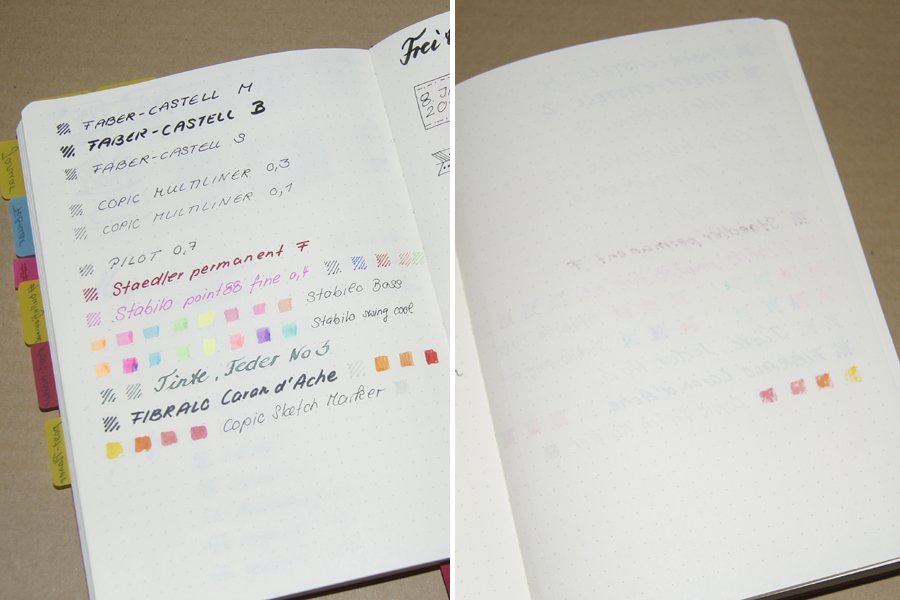 FABER-CASTELL M
FABER-CASTELL B
FABER-CASTELL S
COPIC MULTILINER 0,3
COPIC MULTILINER 0,1
PILOT 0,7
Staedler permanent F
Stabilo point88 fine 0,4
Stabilo Boss
Stabilo swing cool
Tinte, Feder No 3
FIBRALO Caran d'Ache
Copic Sketch Marker
Frei
8. J
20
Staedler permanent F